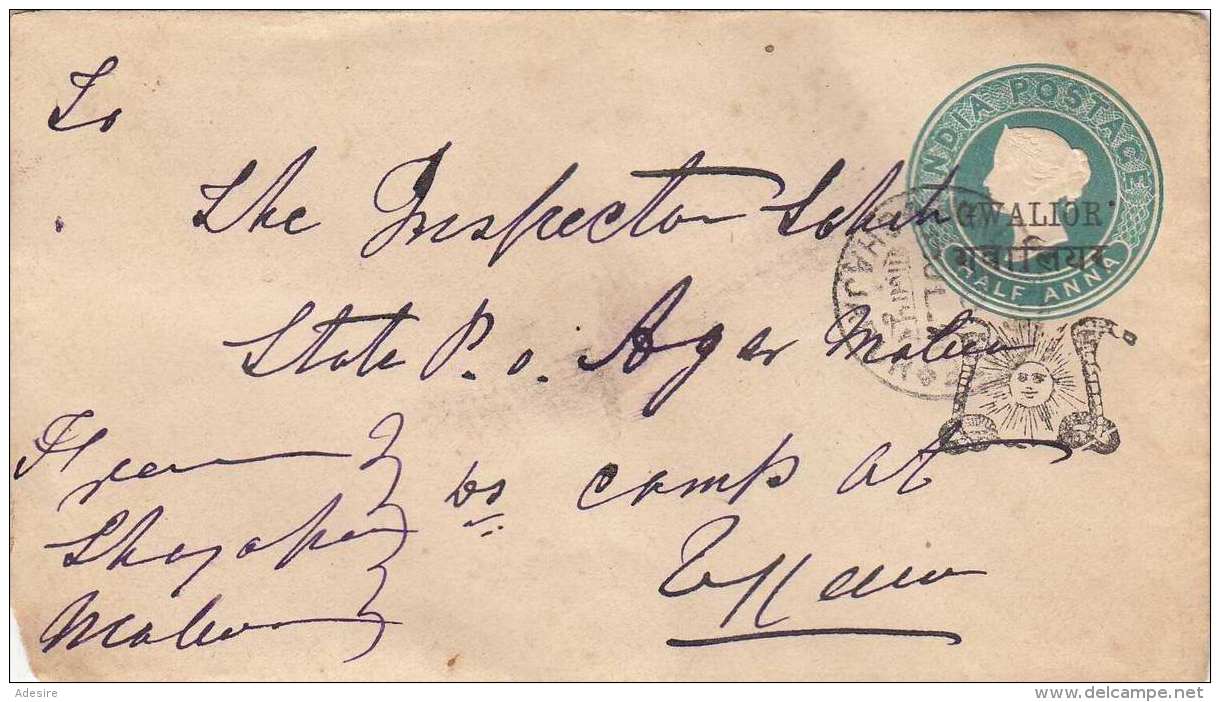 To
The Inspector
State P. o. Agar Malwa
From
Shajapur
Malwa
camp at
INDIA POSTAGE
GWALIOR
गवालियर
HALF ANNA
Adesire
delcampe.net